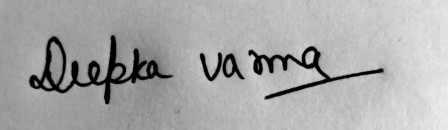 Deepka varma